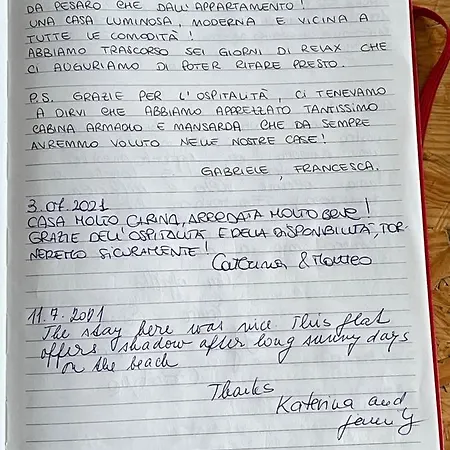 DA PESARO CHE DALL'APPARTAMENTO!
UNA CASA LUMINOSA, MODERNA E VICINA A
TUTTE LE COMODITÀ!
ABBIAMO TRASCORSO SEI GIORNI DI RELAX CHE
CI AUGURIAMO DI POTER RIFARE PRESTO.
P.S. GRAZIE PER L'OSPITALITÀ, CI TENEVAMO
A DIRVI CHE ABBIAMO APPREZZATO TANTISSIMO
CABINA ARMADIO E MANSARDA CHE DA SEMPRE
AVREMMO VOLUTO NELLE NOSTRE CASE!
GABRIELE, FRANCESCA.
3.07.2021
CASA MOLTO CARINA, ARREDATA MOLTO BENE!
GRAZIE DELL'OSPITALITÀ E DELLA DISPONIBILITÀ, TOR-
NEREMO SICURAMENTE!
Caterina & Matteo
11.7.2021
The stay here was nice This flat
offers shadow after long sunny days
on the beach
Thanks
Katerina and